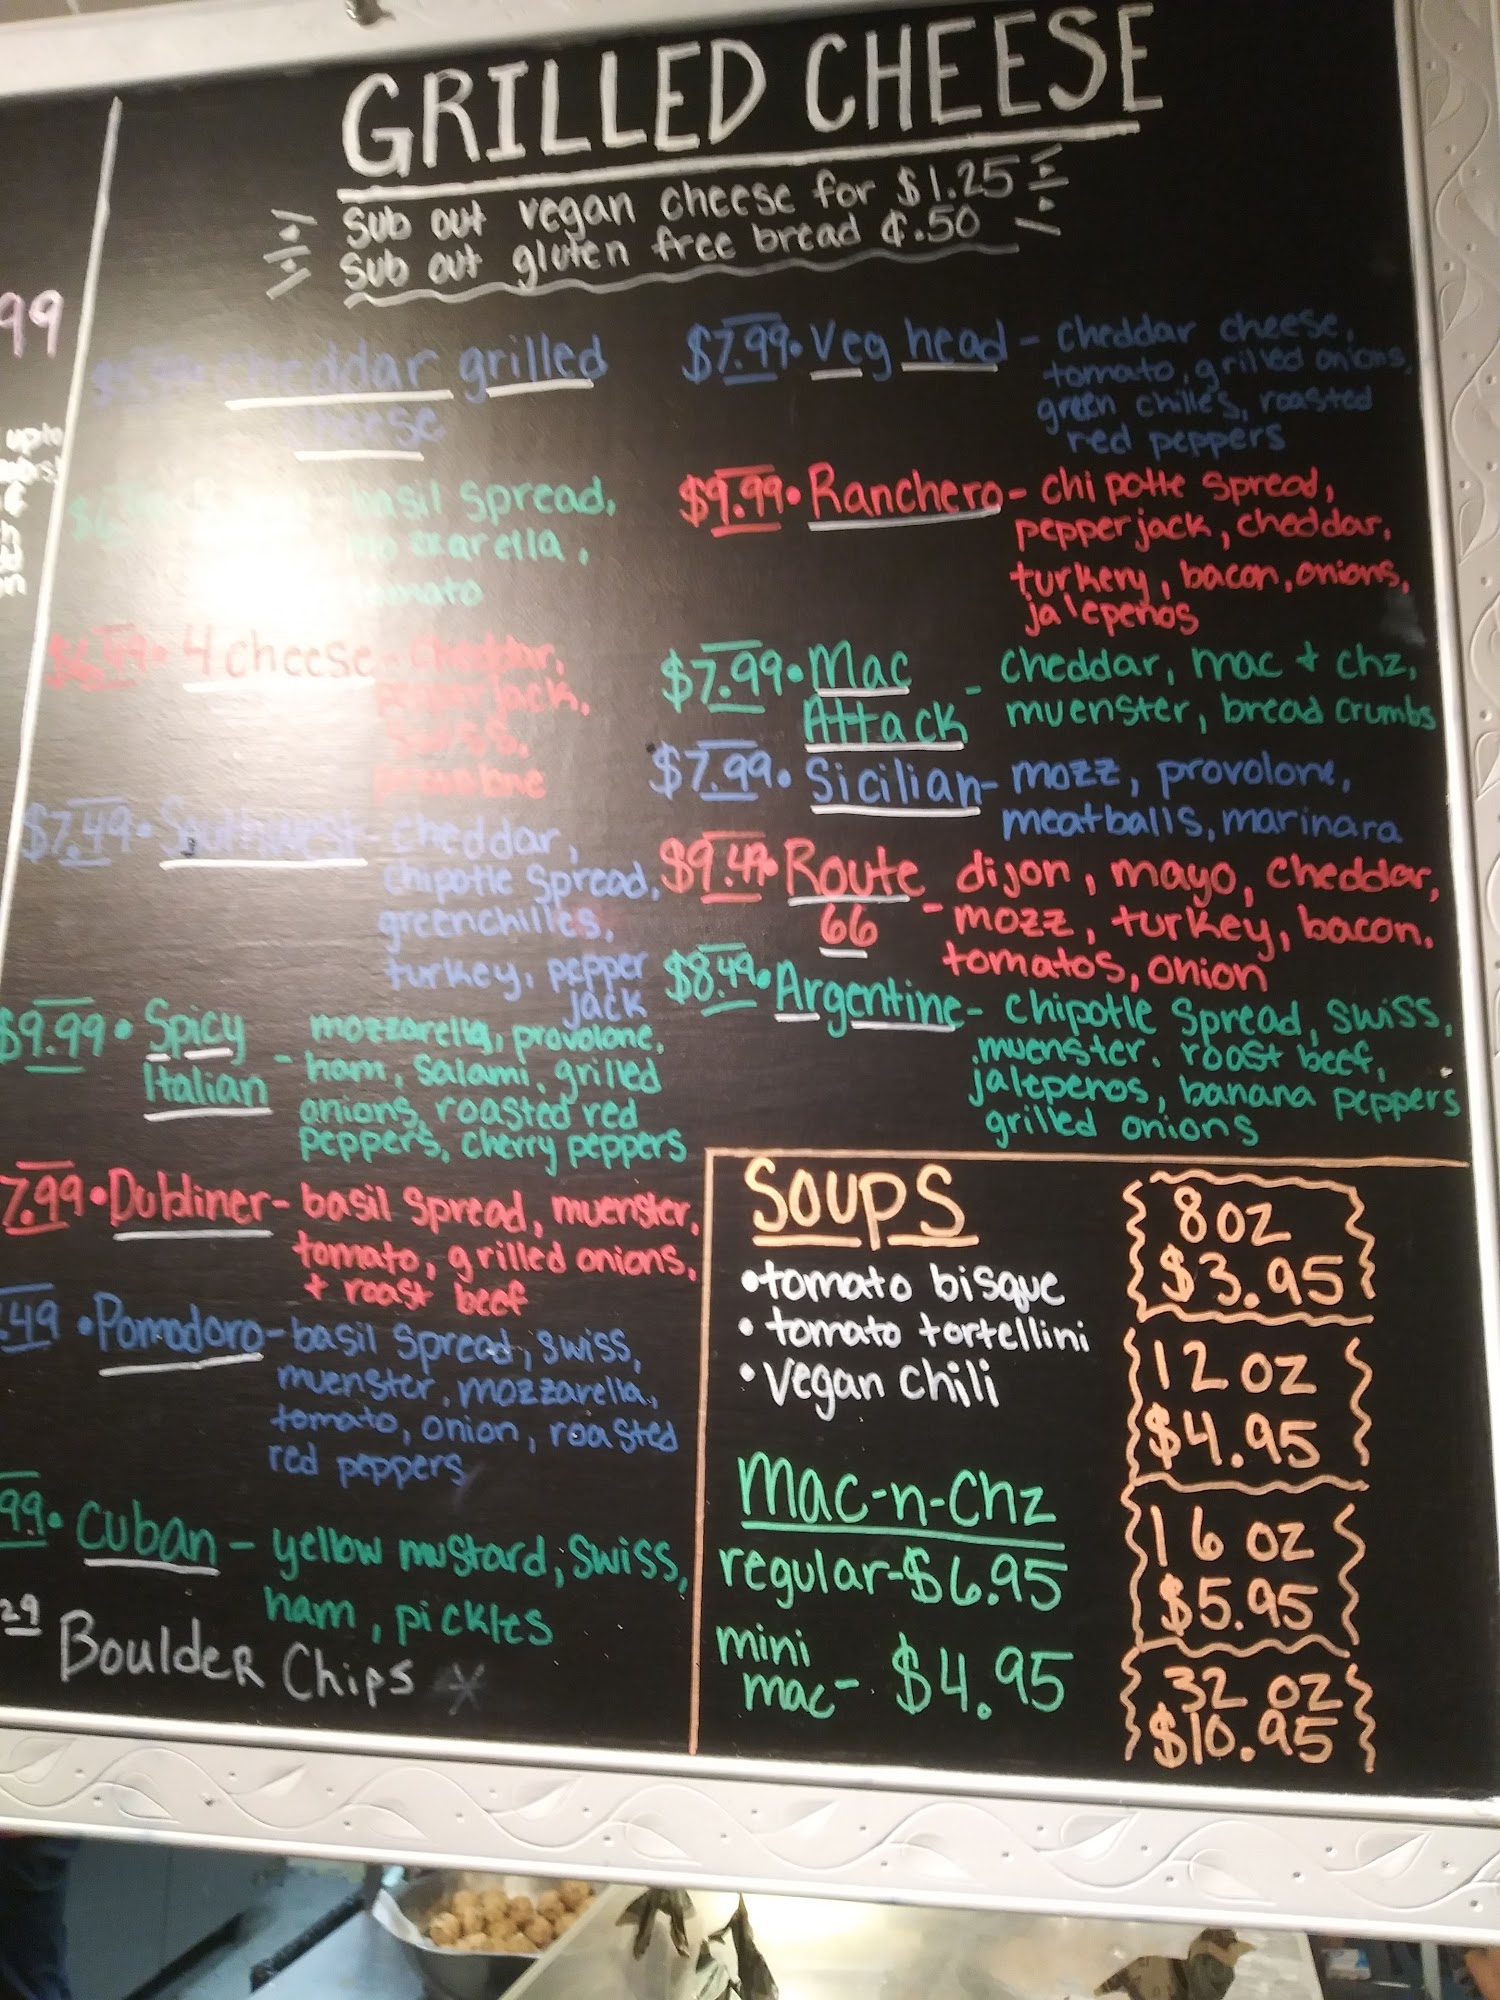 GRILLED CHEESE
Sub out vegan cheese for $1.25
Sub out gluten free bread ¢.50
99
Cheddar grilled
cheese
basil spread,
mozzarella,
tomato
$6.49 • 4 cheese - cheddar,
pepperjack,
swiss,
provolone
$7.49 • Southwest - cheddar,
chipotle spread,
greenchilles,
turkey, pepper
jack
$9.99 • Spicy
Italian - mozzarella, provolone,
ham, salami, grilled
onions, roasted red
peppers, cherry peppers
7.99 • Dubliner - basil spread, muenster,
tomato, grilled onions,
+ roast beef
.49 • Pomodoro - basil spread, swiss,
muenster, mozzarella,
tomato, onion, roasted
red peppers
99 • Cuban - yellow mustard, swiss,
ham, pickles
29 Boulder Chips
$7.99 • Veg head - cheddar cheese,
tomato, grilled onions,
green chilles, roasted
red peppers
$9.99 • Ranchero - chipotle spread,
pepperjack, cheddar,
turkery, bacon, onions,
jalepeños
$7.99 • Mac
Attack - cheddar, mac + chz,
muenster, bread crumbs
$7.99 • Sicilian - mozz, provolone,
meatballs, marinara
$9.49 • Route
66 - dijon, mayo, cheddar,
mozz, turkey, bacon,
tomatos, onion
$8.49 • Argentine - chipotle spread, swiss,
muenster, roast beef,
jalepenos, banana peppers
grilled onions
Soups
• tomato bisque
• tomato tortellini
• Vegan chili
8 oz
$3.95
12 oz
$4.95
16 oz
$5.95
32 oz
$10.95
Mac-n-Chz
regular - $6.95
mini
mac - $4.95